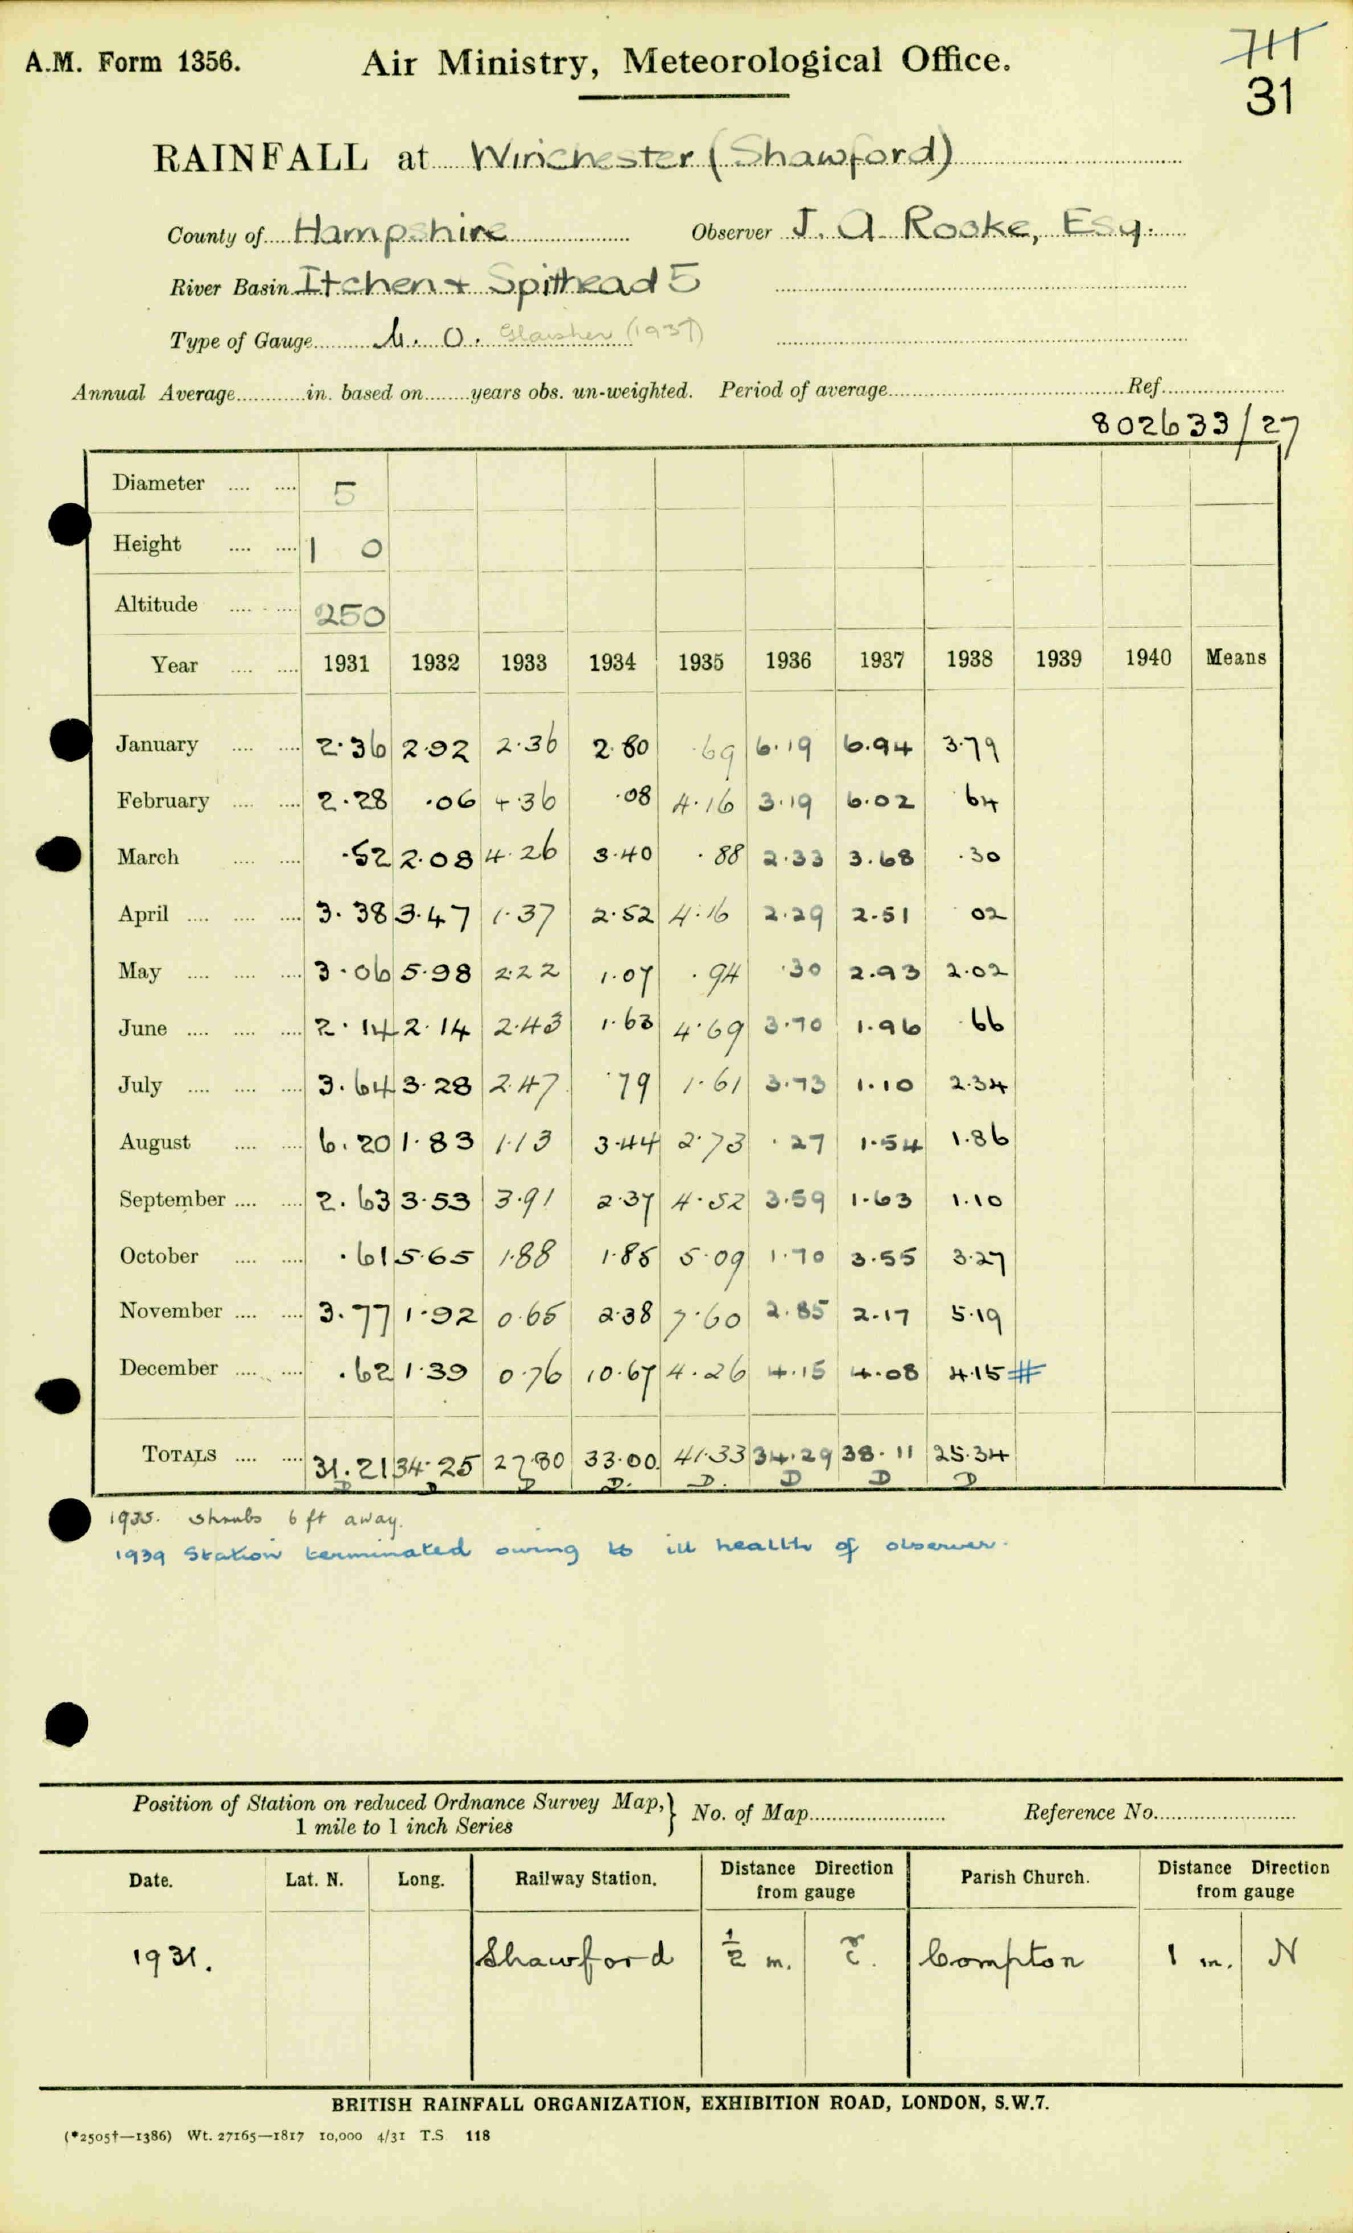 A.M. Form 1356. Air Ministry, Meteorological Office. 711
31
RAINFALL at Winchester (Shawford)
County of Hampshire Observer J. A. Rooke, Esq.
River Basin Itchen + Spithead 5
Type of Gauge M. O. Glaisher (1937)
Annual Average............in. based on........years obs. un-weighted. Period of average............Ref............
802633/27
Diameter .... .... 5
Height .... .... 1 0
Altitude .... .... 250
Year .... .... 1931 1932 1933 1934 1935 1936 1937 1938 1939 1940 Means
January .... .... 2.36 2.92 2.36 2.80 .69 6.19 6.94 3.79
February .... .... 2.28 .06 4.36 .08 4.16 3.19 6.02 64
March .... .... .52 2.08 4.26 3.40 .88 2.33 3.68 .30
April .... .... .... 3.38 3.47 1.37 2.52 4.16 2.29 2.51 02
May .... .... .... 3.06 5.98 2.22 1.07 .94 .30 2.93 2.02
June .... .... .... 2.14 2.14 2.43 1.63 4.69 3.70 1.96 .66
July .... .... .... 3.64 3.28 2.47 .79 1.61 3.73 1.10 2.34
August .... .... 6.20 1.83 1.13 3.44 2.73 .27 1.54 1.86
September .... .... 2.63 3.53 3.91 2.37 4.52 3.59 1.63 1.10
October .... .... .61 5.65 1.88 1.85 5.09 1.70 3.55 3.27
November .... .... 3.77 1.92 0.65 2.38 7.60 2.85 2.17 5.19
December .... .... .62 1.39 0.76 10.67 4.26 4.15 4.08 4.15 #
TOTALS .... .... 31.21 34.25 27.80 33.00 41.33 34.29 38.11 25.34
D D D D. D. D D D
1935. shrubs 6 ft away.
1939 Station terminated owing to ill health of observer.
Position of Station on reduced Ordnance Survey Map,} No. of Map............ Reference No............
1 mile to 1 inch Series
Date. Lat. N. Long. Railway Station. Distance Direction from gauge Parish Church. Distance Direction from gauge
1931. Shawford ½ m. E. Compton 1 m. N
BRITISH RAINFALL ORGANIZATION, EXHIBITION ROAD, LONDON, S.W.7.
(*2505†—1386) Wt. 27165—1817 10,000 4/31 T.S 118